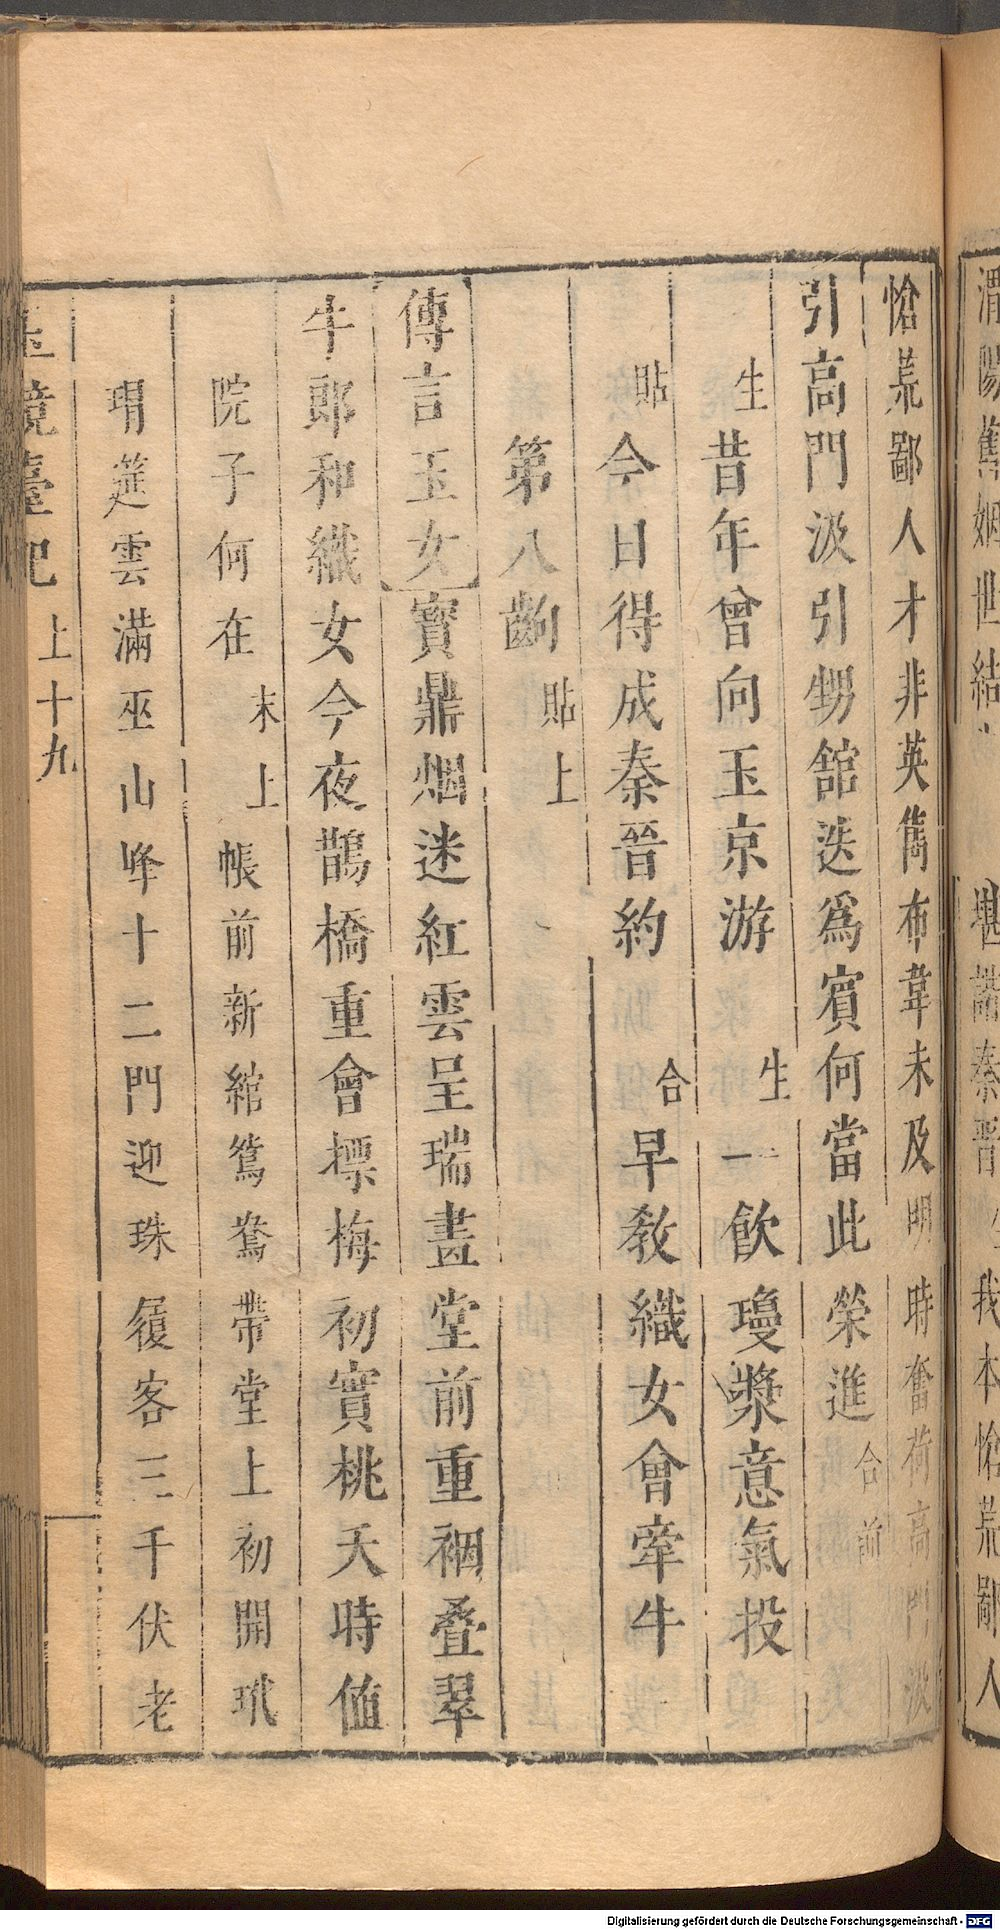 渭陽舊姻世結
世諧秦晉
我本愴荒鄙人
愴荒鄙人才非英雋布韋未及明時奮荷高門汲
引高門汲引甥舘迭爲賓何當此榮進合前
生昔年曾向玉京游生一飲瓊漿意氣投
貼今日得成秦晉約合早敎織女會牽牛
第八齣貼上
傳言玉女寳鼎烟迷紅雲呈瑞畫堂前重裀叠翠
牛郎和織女今夜鵲橋重會摽梅初實桃夭時値
院子何在末上帳前新綰鴛鴦帶堂上初開玳
瑁筵雲滿巫山峰十二門迎珠履客三千伏老
玉鏡臺記上十九
Digitalisierung gefördert durch die Deutsche Forschungsgemeinschaft - DFG